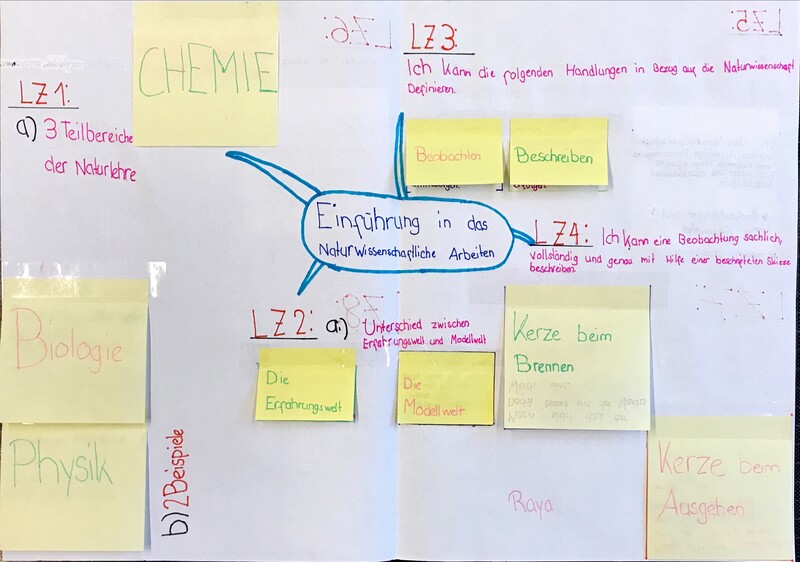 CHEMIE
LZ6:
LZ5:
LZ1:
a) 3 Teilbereiche
der Naturlehre
LZ3:
Ich kann die folgenden Handlungen in Bezug auf die Naturwissenschaft
Definieren.
Beobachten
Beschreiben
Einführung in das
Naturwissenschaftliche Arbeiten
LZ4: Ich kann eine Beobachtung sachlich,
vollständig und genau mit Hilfe einer beschrifteten Skizze
beschreiben
LZ2: a) Unterschied zwischen
Erfahrungswelt und Modellwelt
Die
Erfahrungswelt
Die
Modellwelt
Kerze beim
Brennen
Kerze beim
Ausgehen
Biologie
Physik
b) 2 Beispiele
Raya